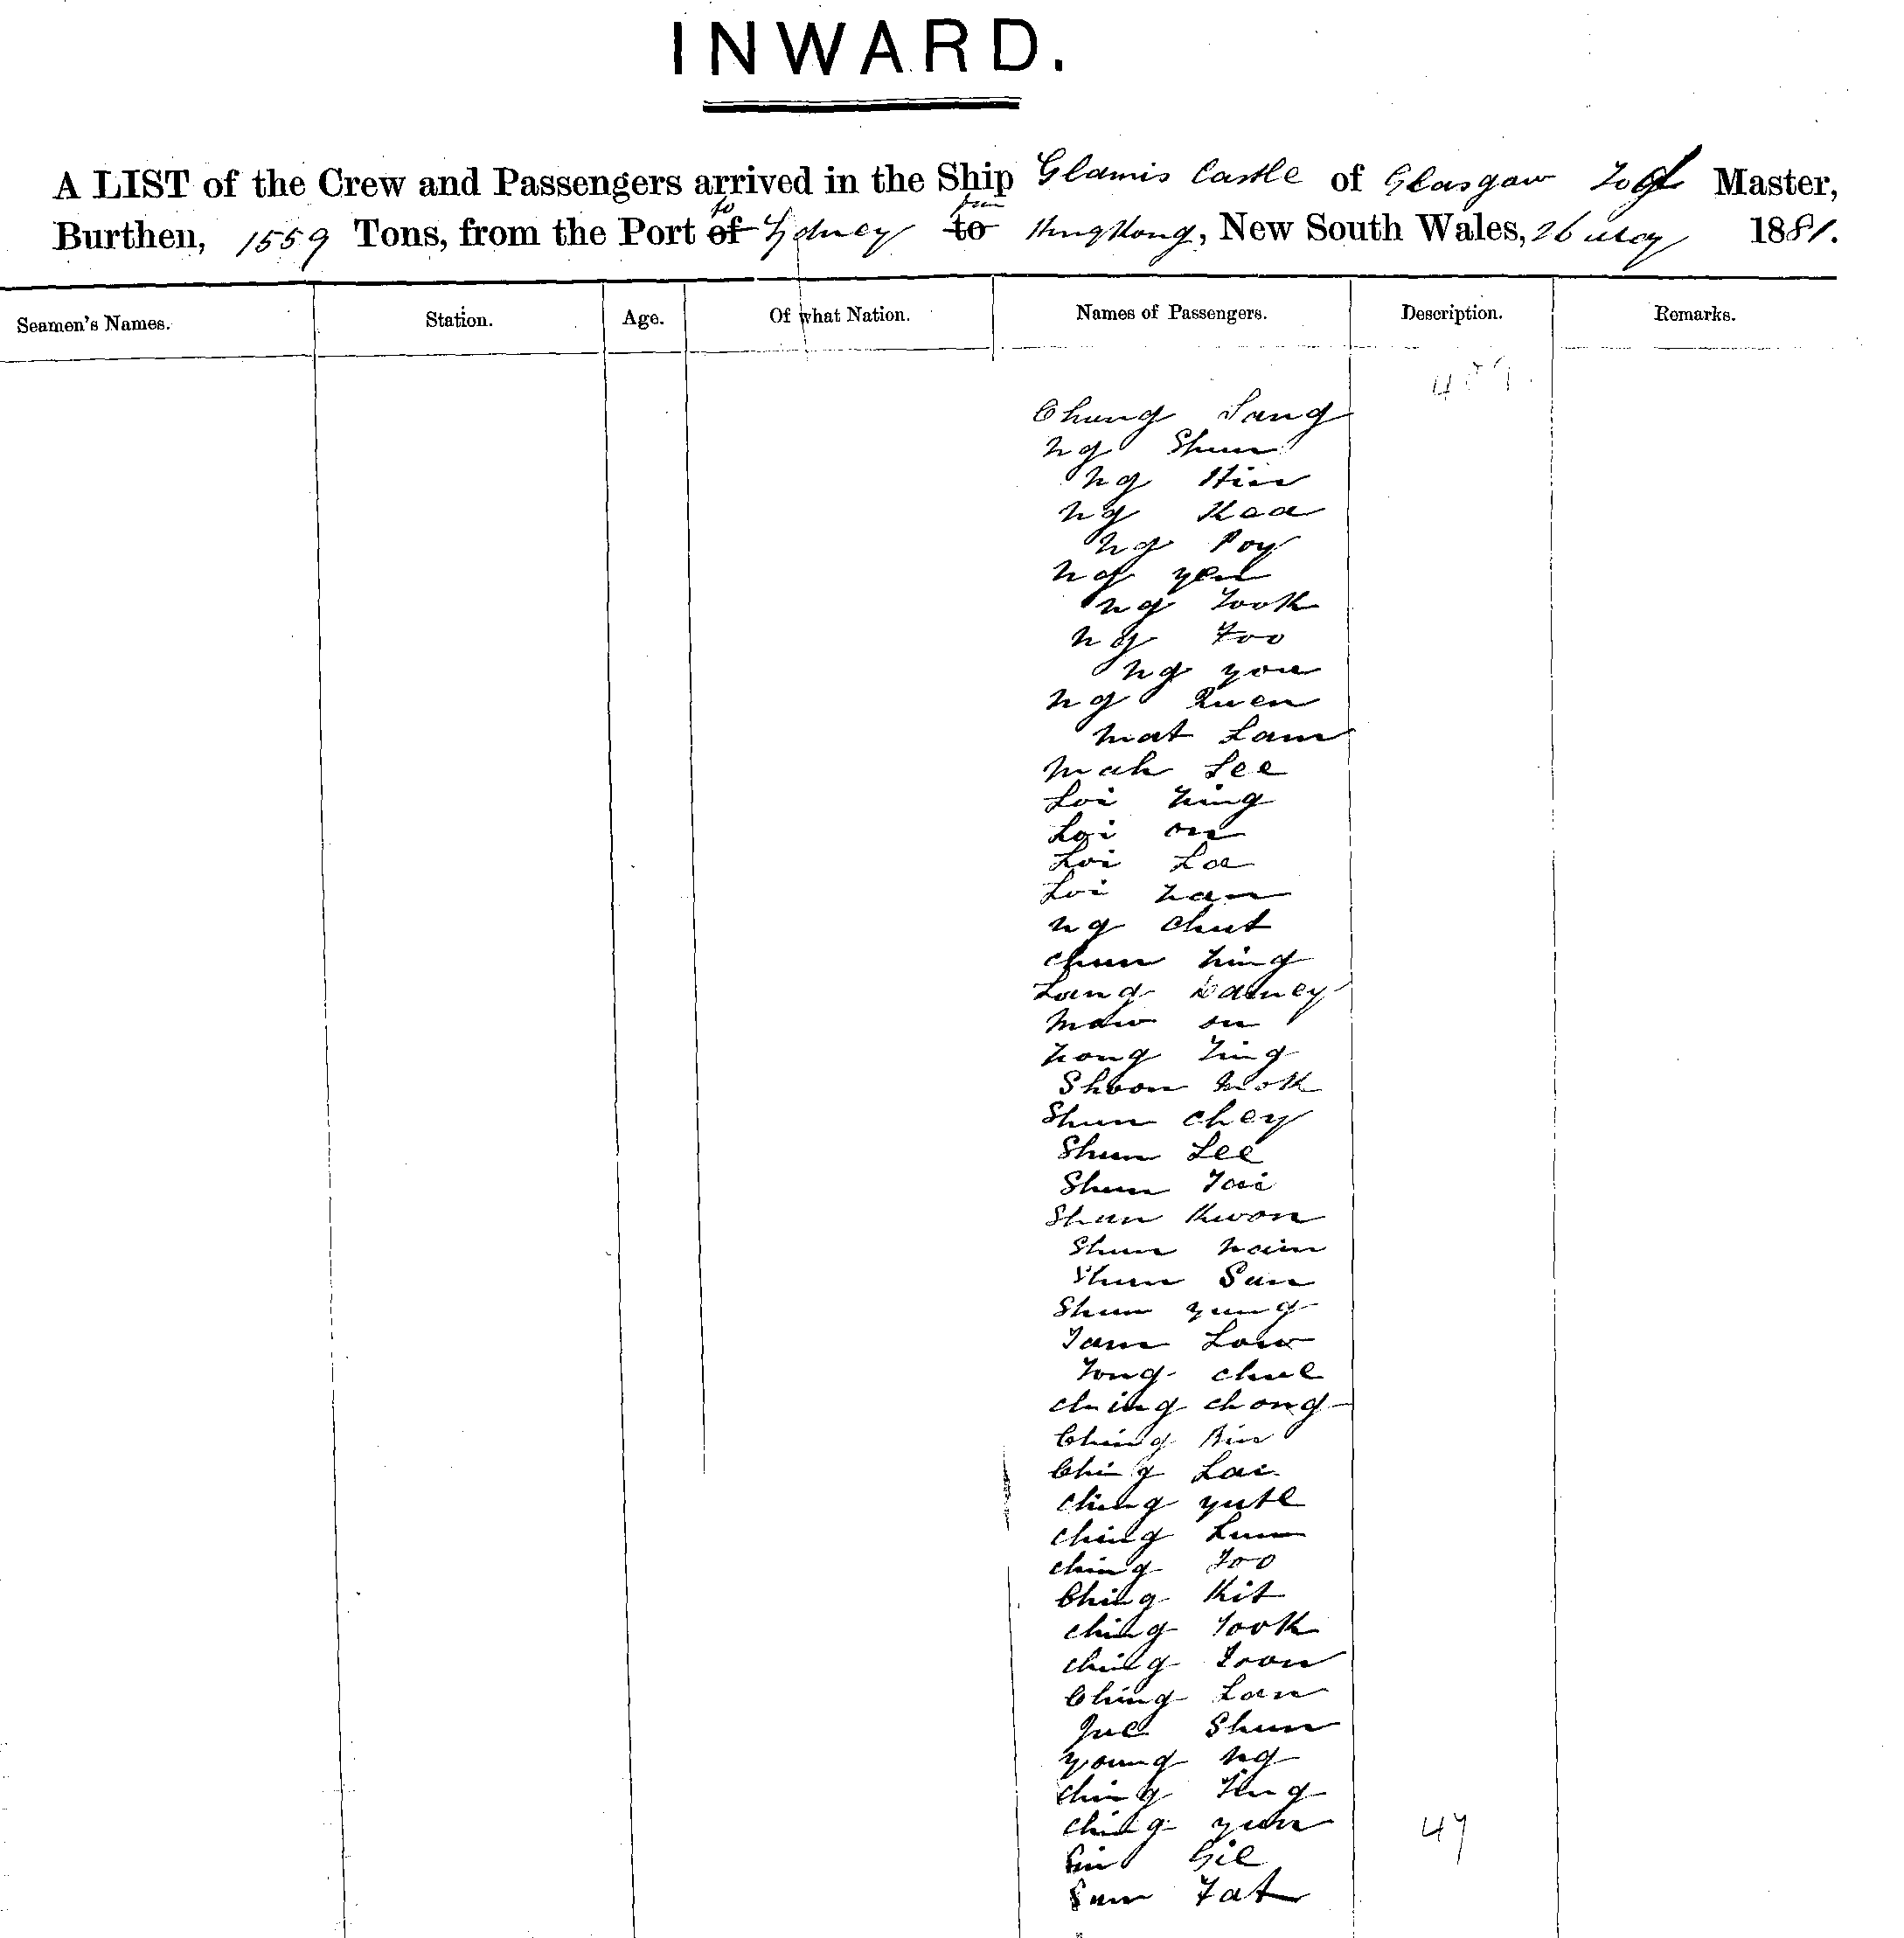 INWARD.
A LIST of the Crew and Passengers arrived in the Ship Glamis Castle of Glasgow Master,
to
Burthen, 1559 Tons, from the Port of Sydney to Hong Kong, New South Wales, 26 May 1881.
Seamen's Names. Station. Age. Of what Nation. Names of Passengers. Description. Remarks.
Chung Sang
Ng Shun
Ng Hin
Ng Kaa
Ng Poy
Ng Yen
Ng Took
Ng Foo
Ng You
Ng Quen
Mat Lam
Mah Lee
Loi Ning
Loi On
Loi Loe
Loi Nan
Ng Chut
Chun Ning
Long
Maw On
Hong Ting
Shoon Mok
Shun Chey
Shun Lee
Shun Toi
Shun Kwon
Shun Nain
Shun Sun
Shun Yung
Tam Low
Tong Chue
Ching Chong
Ching Bin
Ching Lai
Ching
Ching Lum
Ching Foo
Ching Kit
Ching Took
Ching Toon
Ching Lan
Jue Shun
Young Ng
Ching Ting
Ching Yun 47
Gee
Sum Fat